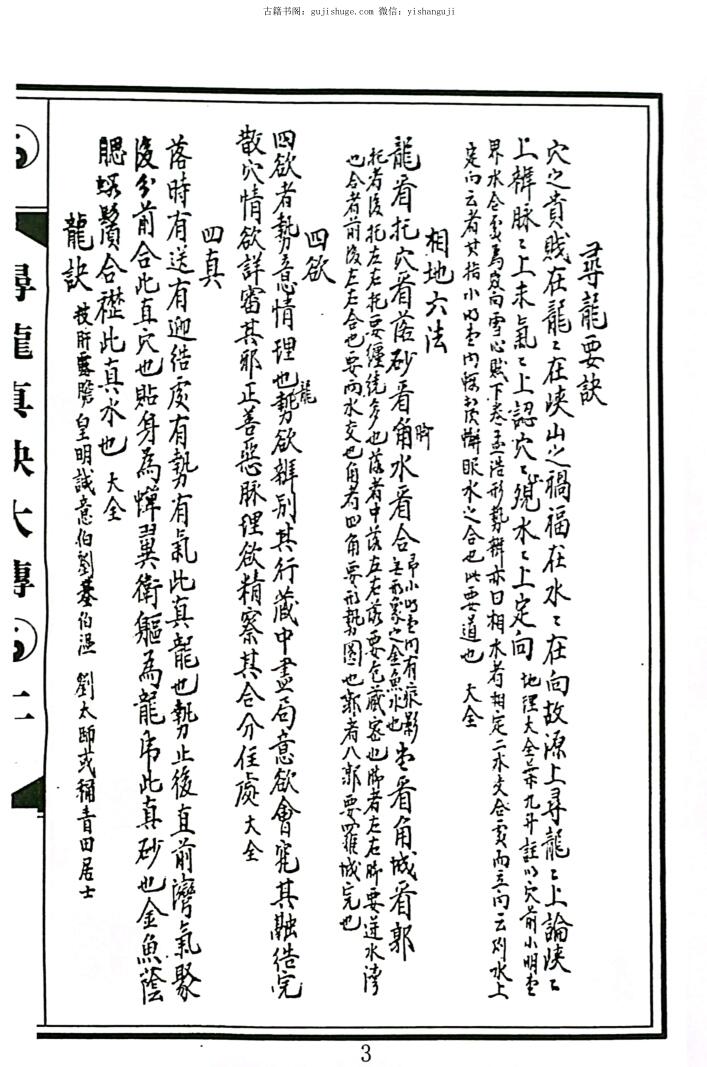 古籍书阁：gujishuge.com 微信：yishanguji
尋龍要訣
穴之貴賤在龍〻在峽山之禍福在水〻在向故源上尋龍〻上論峽〻
上辨脉〻上求氣〻上認穴〻後水〻上定向 地理大全 註以穴前小明堂
界水合 為 向雪心賦下卷孟浩形勢辨亦曰相水者相定二水交合 而立向云則水上
定向云者其指小明堂內 眼水之合也此要道也 大全
相地六法
龍看托穴看落砂看角水看合 小明堂內有痕影 無形象之金魚水也 堂看角城看郭
脚
托者後托左右托要纏繞多也落者中落左右落要包藏密也脚者左右脚要逆水灣
也合者前後左右合也要兩水交也角者四角要形勢圓也郭者八郭要羅城完也
四欲
四欲者勢意情理也勢欲辨別其行藏中盡局意欲會究其融结完
龍
散穴情欲詳審其邪正善惡脉理欲精察其合分住處 大全
四真
落時有送有迎结處有勢有氣此真龍也勢止後直前灣氣聚
後分前合此真穴也貼身為蟬翼衛軀為龍虎此真砂也金魚蔭
腮蝦鬚合襟此真水也 大全
龍訣 披肝露膽 皇明誠意伯劉基伯温 劉太師或稱青田居士
尋龍真訣大傳
上
3